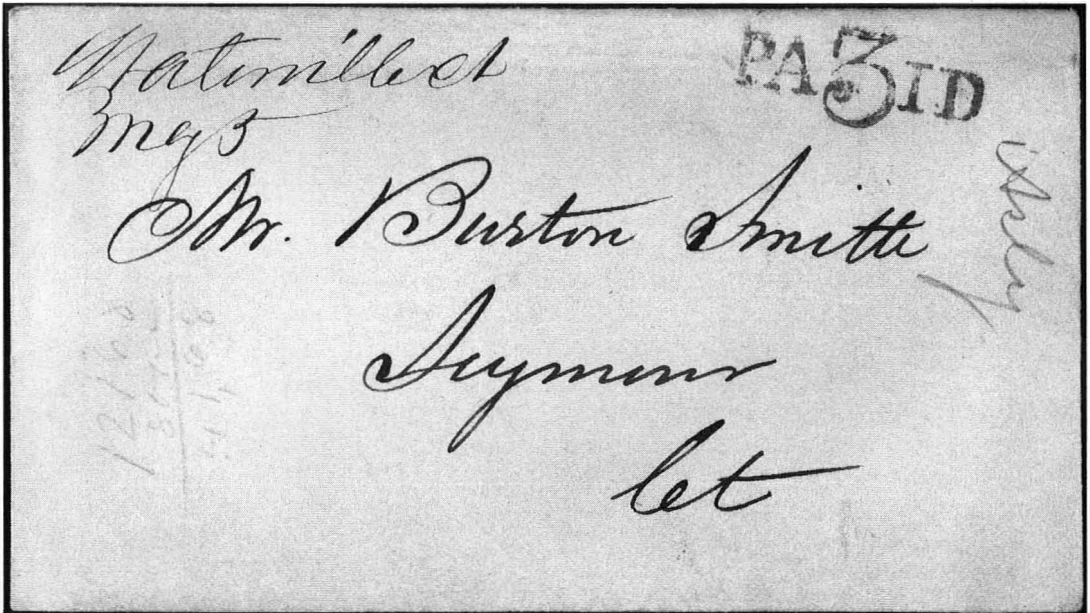 Waterville Ct
May 5
PA3ID
Mr. Burton Smith
Seymour
Ct